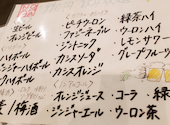 生ビール
オレンジビール
ハイボール
ジンジャーハイボール
ハイボール
梅酒
ピーチウーロン
ファジーネーブル
ジントニック
カシスソーダ
カシスオレンジ
オレンジジュース
ジンジャーエール
緑茶ハイ
ウーロンハイ
レモンサワー
グレープフルーツ
コーラ
ウーロン
緑